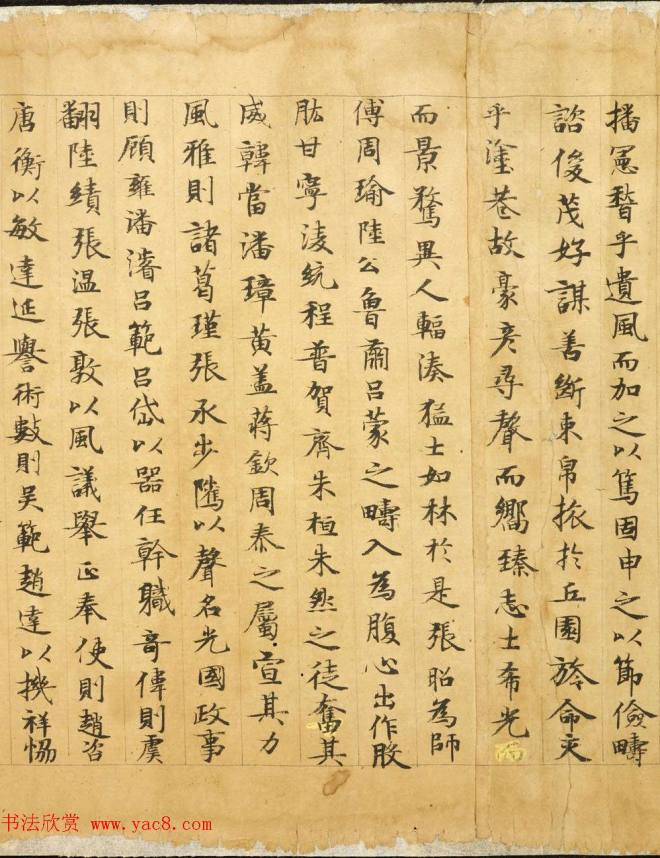 播憲稽乎遺風而加之以篤固申之以節儉疇
諮俊茂好謀善斷束帛旅於丘園旌命交
乎塗巷故豪彦尋聲而嚮臻志士希光而
而景騖異人輻湊猛士如林於是張昭為師
傅周瑜陸公魯肅吕蒙之疇入為腹心出作股
肱甘寧淩統程普賀齊朱桓朱然之徒奮其
威韓當潘璋黄盖蔣欽周泰之屬宣其力
風雅則諸葛瑾張承步騭以聲名光國政事
則顧雍潘濬吕範吕岱以器任幹職奇偉則虞
翻陸績張温張敦以風議舉正奉使則趙咨
唐衡以敏達延譽術數則吴範趙達以機祥恊
书法欣赏 www.yac8.com